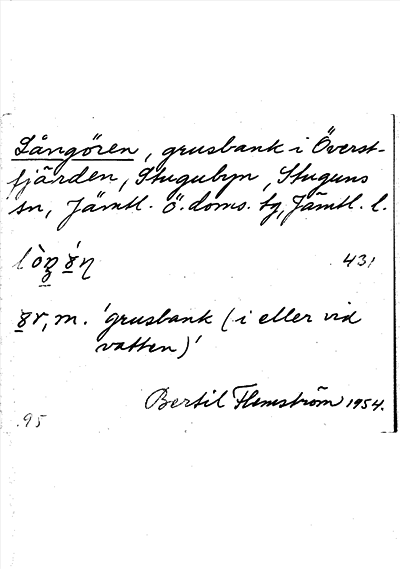 Långören, grusbank i Överst-
fjärden, Stugubyn, Stuguns
sn, Jämtl. ö. doms. tg, Jämtl. l.
431
m. 'grusbank (i eller vid
vatten)'
Bertil Flemström 1954.
.95